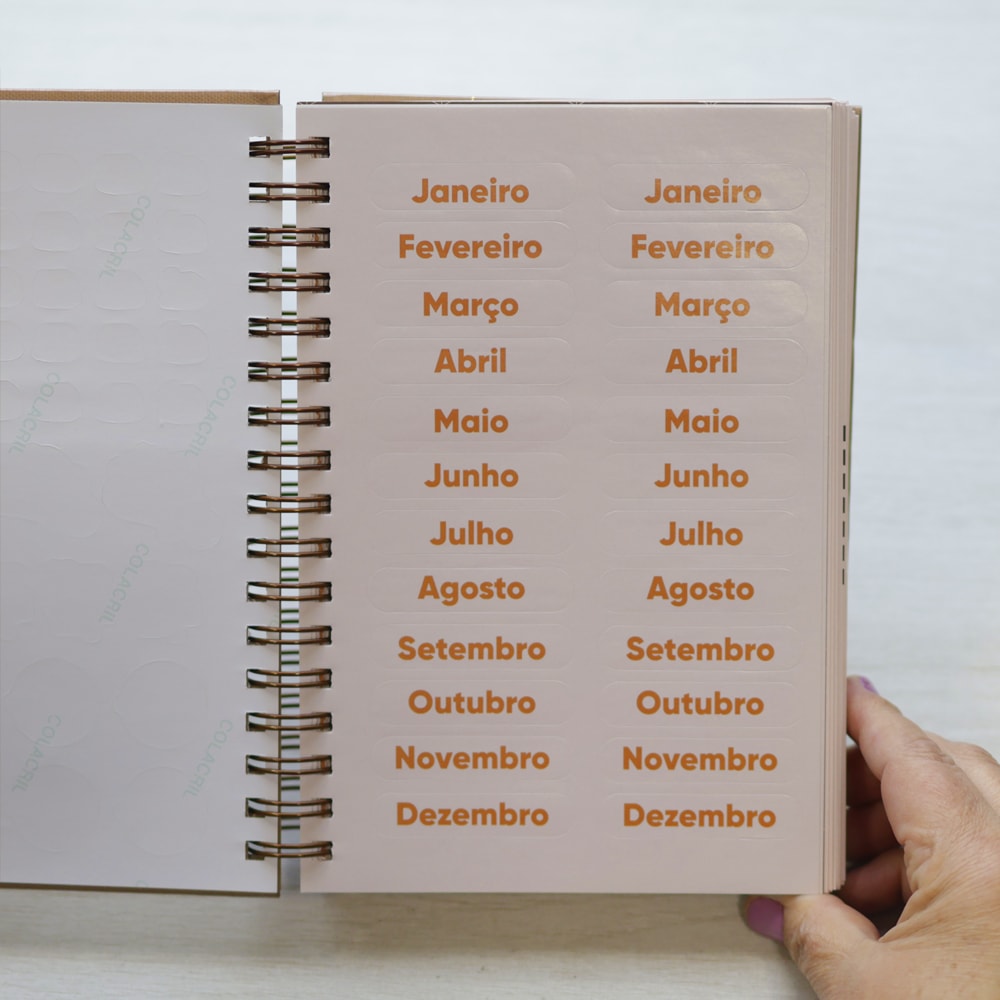 Janeiro Janeiro
Fevereiro Fevereiro
Março Março
Abril Abril
Maio Maio
Junho Junho
Julho Julho
Agosto Agosto
Setembro Setembro
Outubro Outubro
Novembro Novembro
Dezembro Dezembro
COLACRIL
COLACRIL
COLACRIL
COLACRIL
COLACRIL
COLACRIL